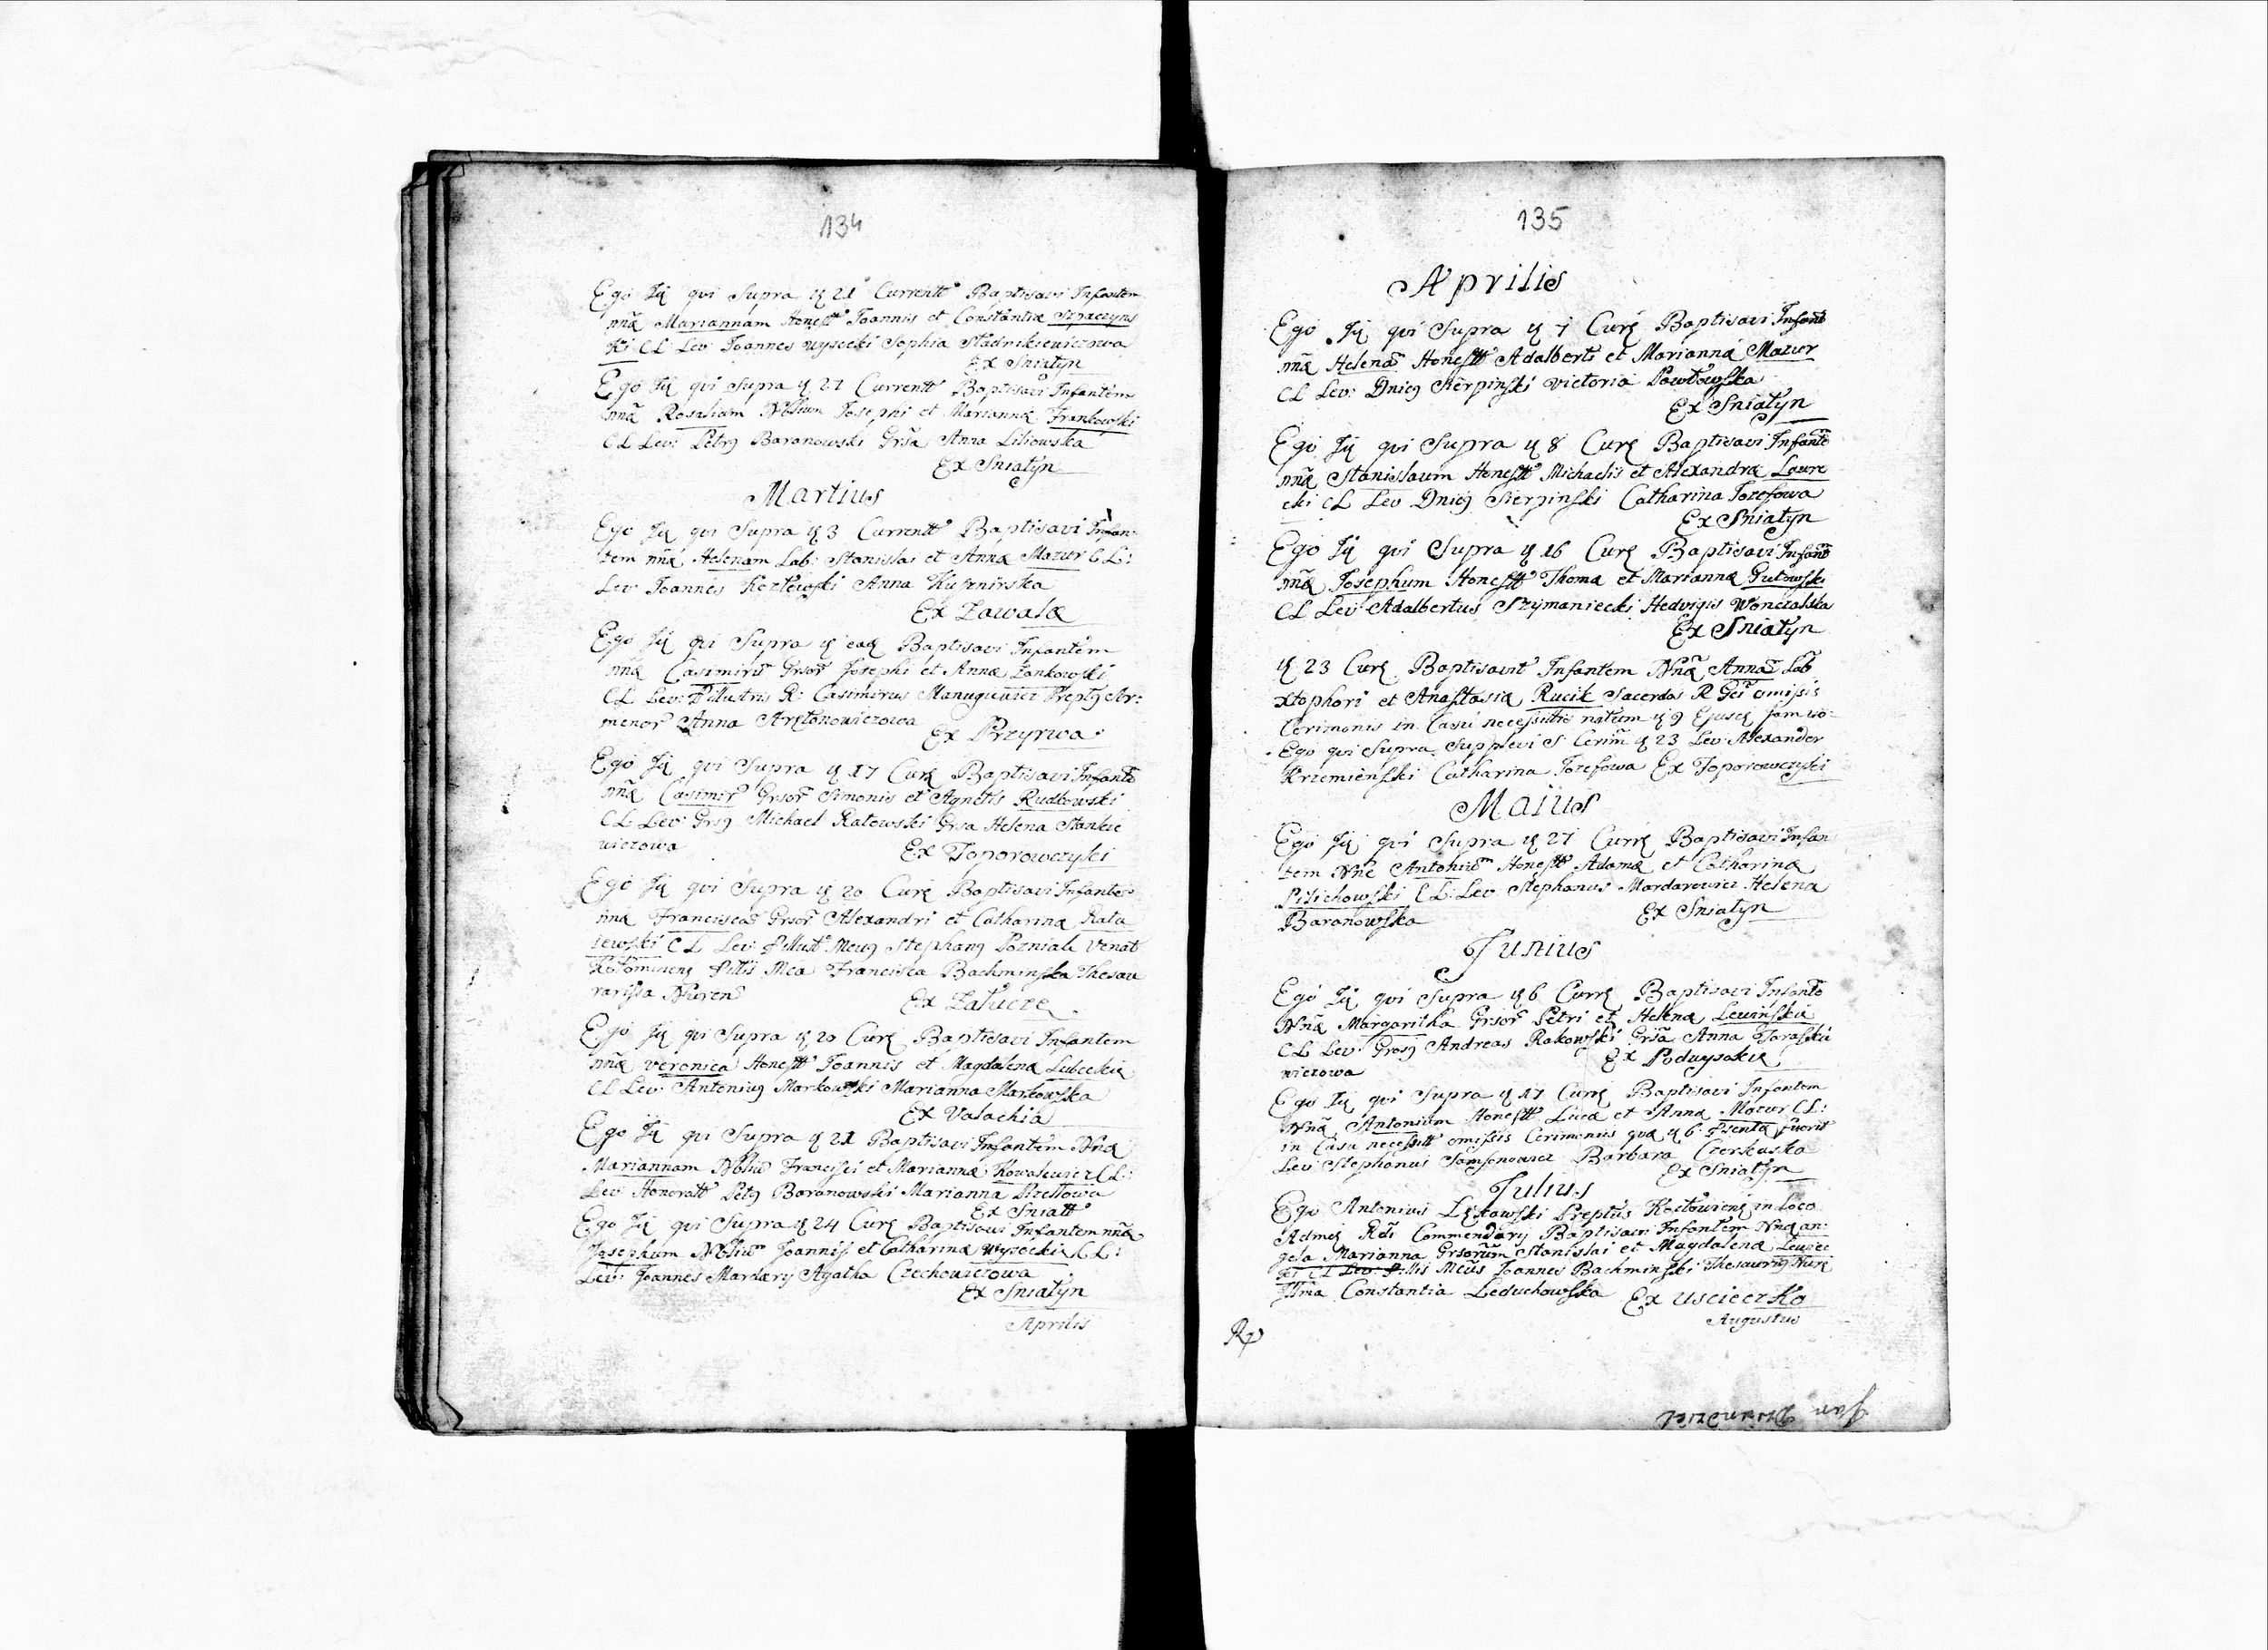 134
Ego Jq qui Supra q 21 Currentt Baptisavi Infantem
nnã Mariannam Honestt Joannis et Constantiæ Szpaczyns
ki CL Lev: Joannes Wysocki Sophia Stadnikiewiczowa
Ex Sniatyn
Ego Jq qui Supra q 27 Currentt Baptisavi Infantem
nnã Rosaliam Nblium Josephi et Mariannæ Frankowski
CL Lev: Petrg Baranowski Grsa Anna Liliowska
Ex Sniatyn
Martius
Ego Jq qui Supra q 3 Currentt Baptisavi Infan:
tem nnã Helenam Lab: Stanislai et Annæ Mazur C L:
Lev: Joannes Kozłowski Anna Kusznirska
Ex Zawale
Ego Jq qui Supra q eaq Baptisavi Infantem
nnã Casimirũ Grsor Josephi et Annæ Zankowski
CL Lev: Pillustris R: Casimirus Manugiewicz Preptg Ar:
menor Anna Axentonowiczowa Ex Przyrwa
Ego Jq qui Supra q 17 Curq Baptisavi Infantẽ
nnã Casimirũ Grsor Simonis et Agnetis Rudkowski
CL Lev: Grsg Michael Ratowski Grsa Helena Stankie
wiczowa Ex Toporowczyki
Ego Jq qui Supra q 20 Curq Baptisavi Infantẽ
nnã Franciscã Grsor Alexandri et Catharinæ Rata
iewski CL Lev: Pillust Mcug Stephang Pozniak Venat
Kołomiieng Pillis Mca Francisca Bachminska Thesau
rarissa Nuren Ex Załucze
Ego Jq qui Supra q 20 Curq Baptisavi Infantem
nnã Veronica Honestt Joannis et Magdalenæ Lubeckie
CL Lev: Antoniug Markowski Marianna Markowska
Ex Valachia
Ego Jq qui Supra q 21 Baptisavi Infantem Nnã
Mariannam Nbliũ Francisci et Mariannæ Kowalewicz C L:
Lev: Honoratt Petrg Baranowski Marianna
Ex Sniatt
Ego Jq qui Supra q 24 Curq Baptisavi Infantem nnã
Josephum Nbliũ Joannis et Catharinæ Wysockie C L:
Lev: Joannes Mardary Agatha Czechowiczowa
Ex Sniatyn
Aprilis
135
Aprilis
Ego Jq qui Supra q 7 Curq Baptisavi Infantẽ
nnã Helenã Honestt Adalberti et Mariannæ Mazur
CL Lev: Dnicg Sierpinski Victoria Pawłowska
Ex Sniatyn
Ego Jq qui Supra q 8 Curq Baptisavi Infantẽ
nnã Stanislaum Honestt Michaelis et Alexandræ Lawre
cki CL Lev Dnicg Sierpinski Catharina Jozefowa
Ex Sniatyn
Ego Jq qui Supra q 16 Curq Baptisavi Infantẽ
nnã Josephum Honestt Thomæ et Mariannæ Gutowski
CL Lev: Adalbertus Szymaniecki Hedvigis Wonczalska
Ex Sniatyn
q 23 Curq Baptisavit Infantem Nnã Annã Lab
Xtophori et Anastasiæ Rucik Sacerdos R Gci omissis
Cerimonis in Casu necessitis natem q 9 Ejusq fam vo
Ego qui Supra Supplevi S Cerim q 23 Lev: Alexander
Krzeminski Catharina Jozefowa Ex Toporowczyki
Maius
Ego Jq qui Supra q 27 Currq Baptisavi Infan
tem Nnẽ Antoniũ Honestt Adamæ et Catharinæ
Pilichowski C L: Lev Stephanus Mardarowicz Helena
Baranowska Ex Sniatyn
Junius
Ego Jq qui Supra q 6 Currq Baptisavi Infantẽ
Nnã Margarithã Grsor Petri et Helenæ Lewinskie
CL Lev: Grosg Andreas Rakowski Grsa Anna Tarasskie
wiczowa Ex Podwysokie
Ego Jq qui Supra q 17 Curq Baptisavi Infantem
Nnã Antonium Honestt Lucæ et Annæ Mazur C L:
in Casu necessitt omissis Cerimoniis quæ q 6 Psentæ fuerit
Lev: Stephanus Samsonowicz Barbara Czerkaska
Ex Sniatyn
Julius
Ego Antonius Lękawski Preptus Kostowieng in Loco
Admq Rdi Commendary Baptisavi Infantem Nnã an:
gela Marianna Grsorum Stanislai et Magdalenæ Lewiec
ki CL Lev: Pillis Mcus Joannes Bachminski Thesaurrg Nurq
Illma Constantia Leduchowska Ex Uscieczko
Augustus
Rp
Jan